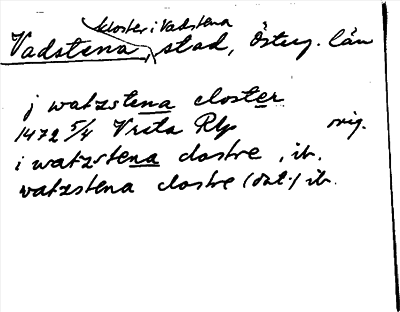 kloster i Vadstena
Vadstena, stad, Österg. län
j watzstena closter
1472 5/4 Vreta Rlp orig.
i watzstena clostre, ib.
watzstena clostre (dat.) ib.